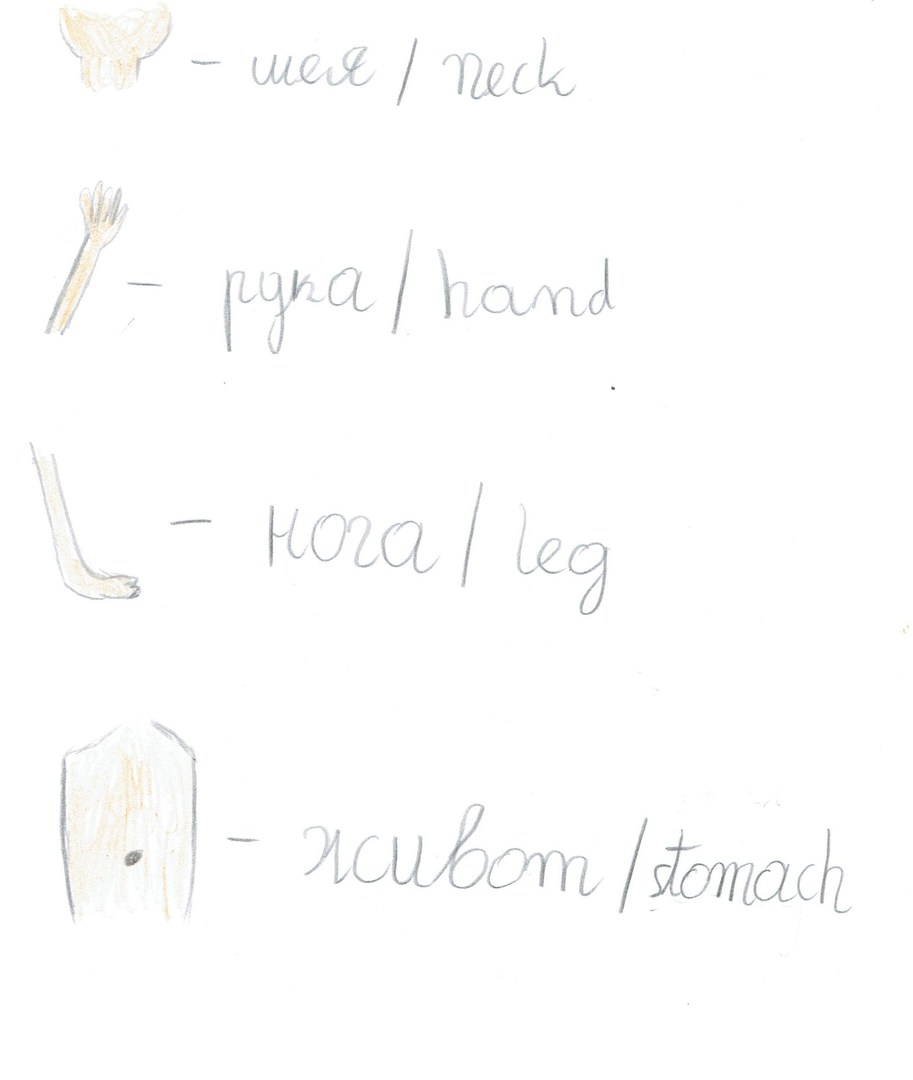 – шея / neck
– рука / hand
– нога / leg
– живот / stomach